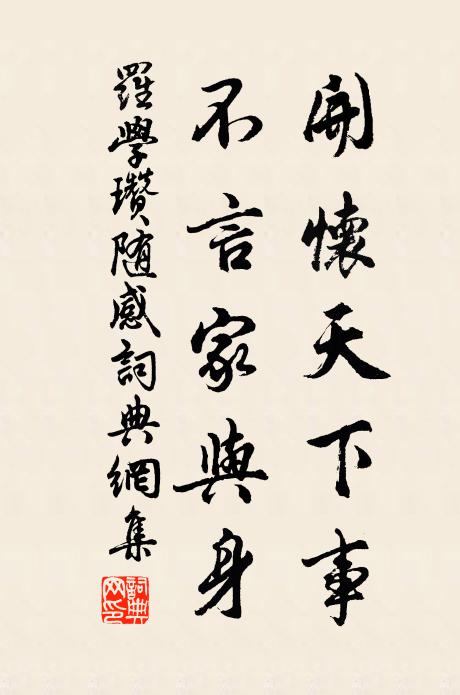 開懷天下事
不言家與身
羅學瓚随感詞典網集
詞典網印